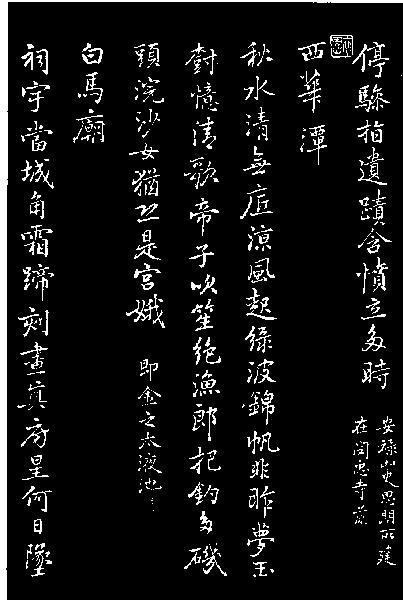 停驂指遺蹟含憤立多時
安祿山史思明所建
在閔忠寺前
西華潭
秋水清無底涼風起綠波錦帆非昨夢玉
樹憶清歌帝子吹笙絕漁郎把釣多磯
頭浣沙女猶恐是宮娥 即金之太液池
白馬廟
祠宇當城角霜蹄刻畫真房星何日墜